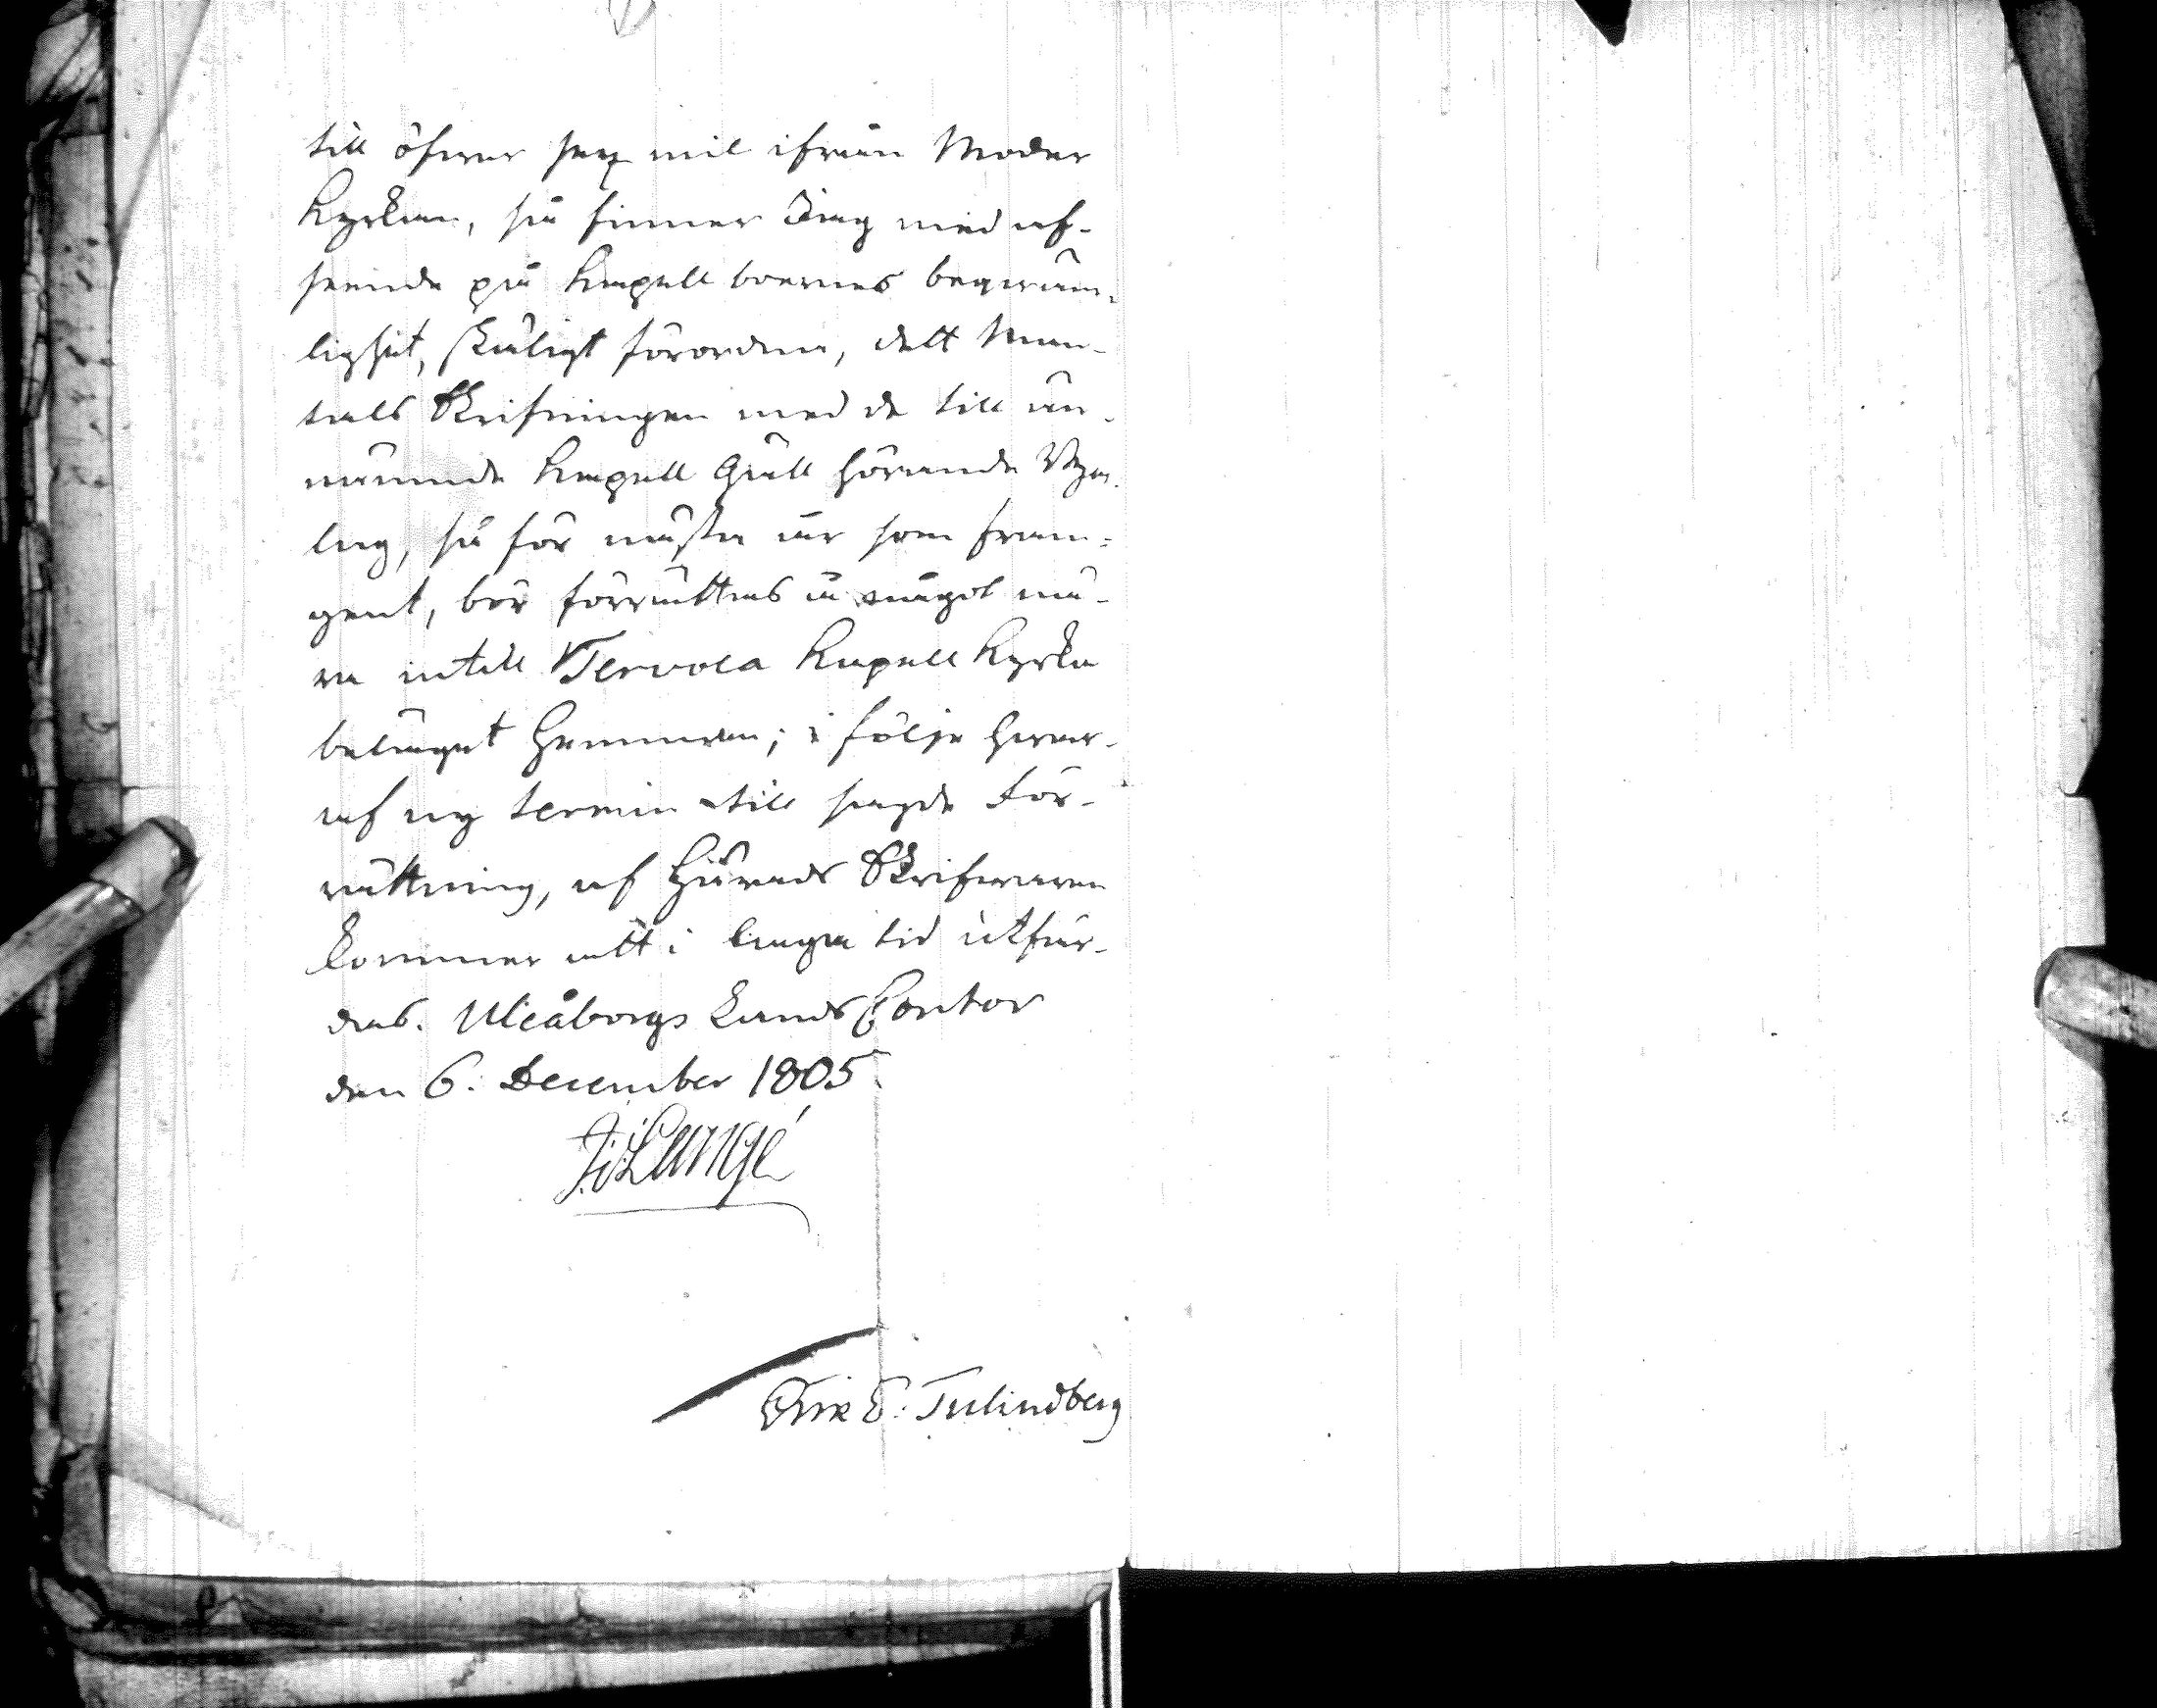 till öfwer sex mil ifrån Moder
Kyrkan, så finner Jag med af-
seende på Kapell boernes beqwäm-
lighet, skäligt förordna, dett Man-
tals Skrifningen med de till än-
nämnde Kapell Gäll hörande
lag, så för nästa år som fram-
gent, bör förrättas å något nä-
ra intill Tervola Kapell Kyrka
beläget Hemman; i följe hwar-
af ny termin till sagde För-
rättning, af Härads Skrifwaren
kommer att i laga tid utfär-
das. Uleåborgs Lands Contor
den 6. December 1805.
Langé
Eric E. Tulindberg